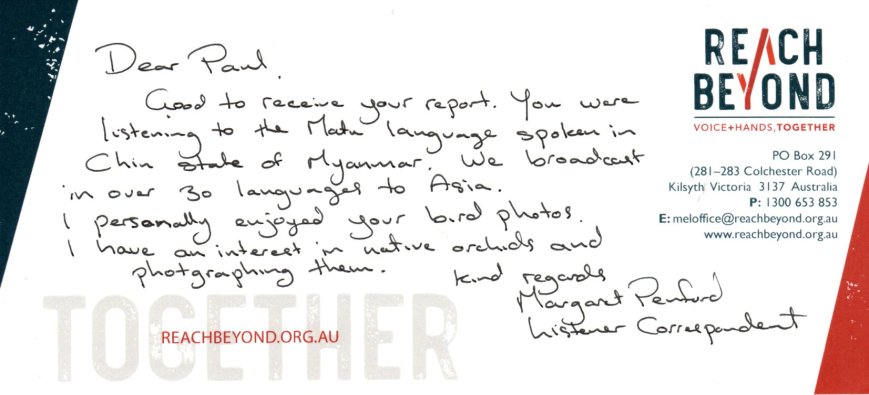 REACH
BEYOND
VOICE+HANDS, TOGETHER
PO Box 291
(281–283 Colchester Road)
Kilsyth Victoria 3137 Australia
P: 1300 653 853
E: meloffice@reachbeyond.org.au
www.reachbeyond.org.au
Dear Paul,
Good to receive your report. You were
listening to the Matu language spoken in
Chin state of Myanmar. We broadcast
in over 30 languages to Asia.
I personally enjoyed your bird photos.
I have an interest in native orchids and
photgraphing them.
Kind regards
Margaret Penford
Listener Correspondent
TOGETHER
REACHBEYOND.ORG.AU